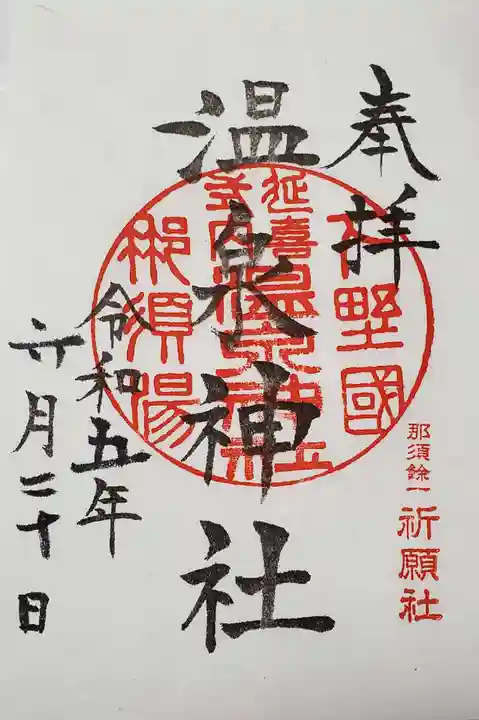 奉拝
下野國
延喜式内温泉神社
那須湯
温泉神社
令和五年
六月二十日
那須餘一
祈願社